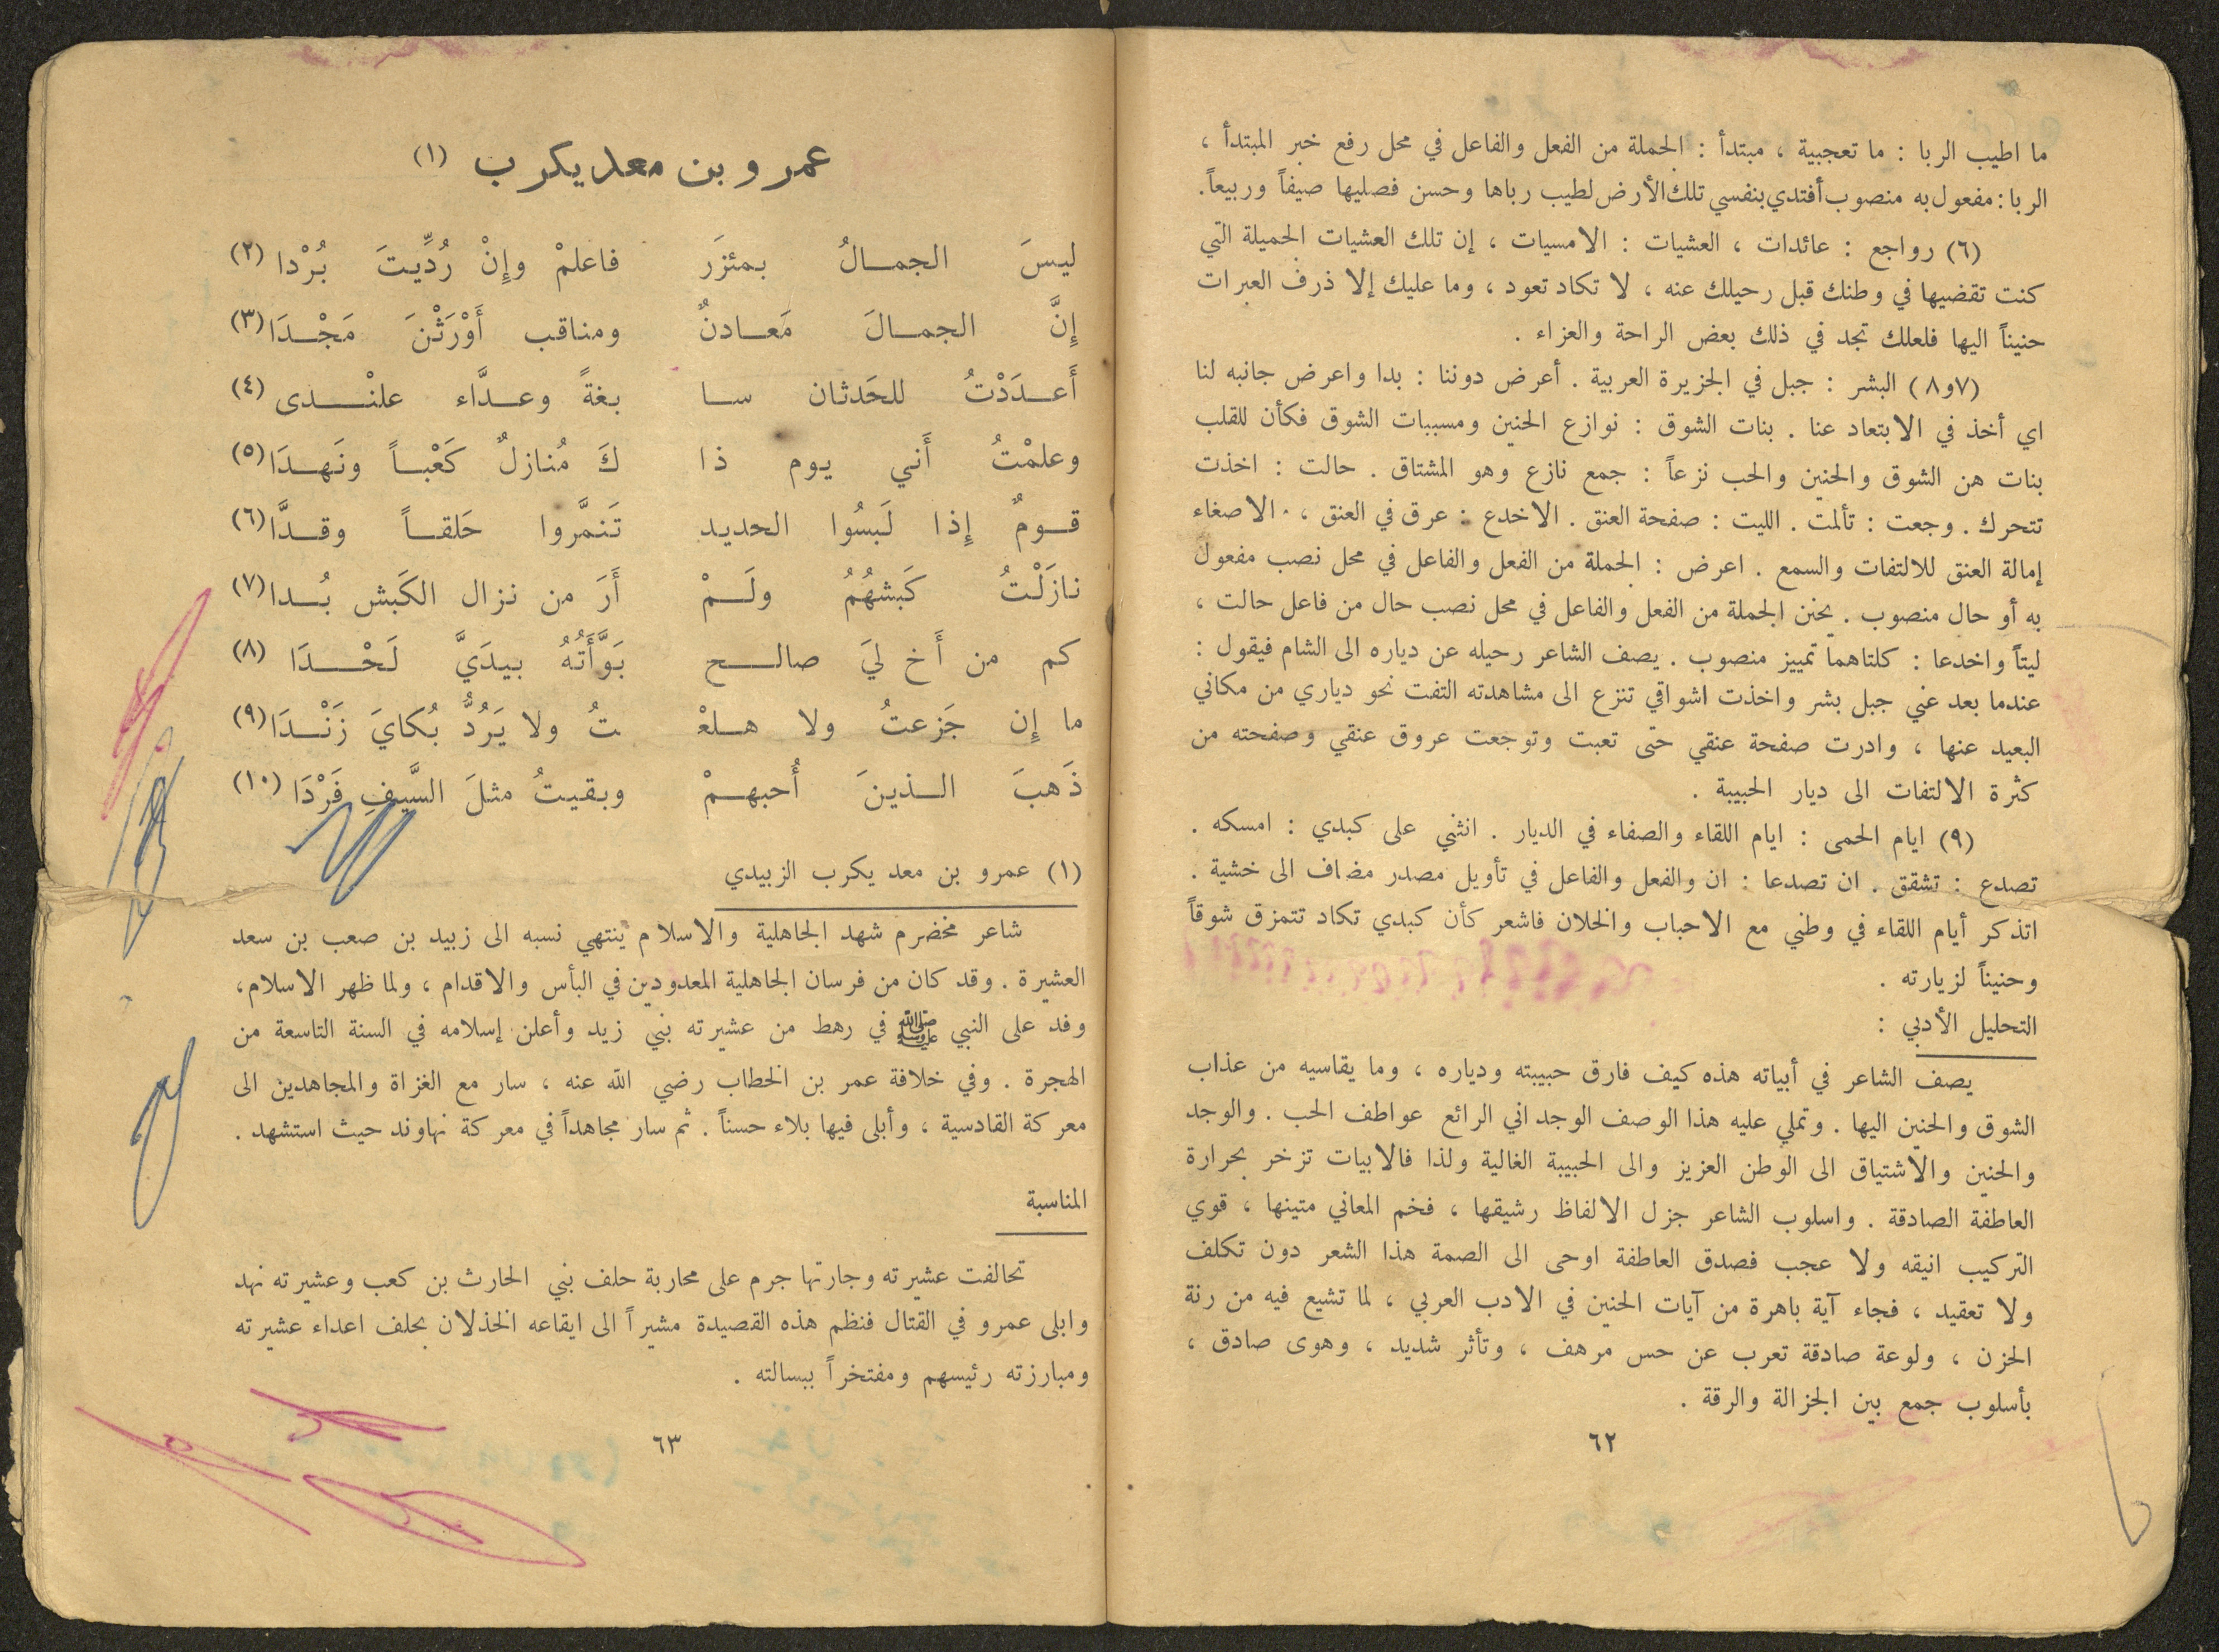 ما اطيب الربا : ما تعجبية ، مبتدأ : الجملة من الفعل والفاعل في محل رفع خبر المبتدأ ،
الربا : مفعول به منصوب أفتدي بنفسي تلك الأرض لطيب رباها وحسن فصليها صيفاً وربيعاً .
(٦) رواجع : عائدات ، العشيات : الامسيات ، إن تلك العشيات الجميلة التي
كنت تقضيها في وطنك قبل رحيلك عنه ، لا تكاد تعود ، وما عليك إلا ذرف العبرات
حنيناً اليها فلعلك تجد في ذلك بعض الراحة والعزاء .
(٧و٨) البشر : جبل في الجزيرة العربية . أعرض دوننا : بدا واعرض جانبه لنا
اي أخذ في الابتعاد عنا . بنات الشوق : نوازع الحنين ومسببات الشوق فكأن للقلب
بنات هن الشوق والحنين والحب نزعاً : جمع نازع وهو المشتاق . حالت : اخذت
تتحرك . وجعت : تألمت . الليت : صفحة العنق . الاخدع : عرق في العنق ، الاصغاء
إمالة العنق للالتفات والسمع . اعرض : الجملة من الفعل والفاعل في محل نصب مفعول
به أو حال منصوب . يحنن الجملة من الفعل والفاعل في محل نصب حال من فاعل حالت ،
ليتاً واخدعا : كلتاهما تمييز منصوب . يصف الشاعر رحيله عن دياره الى الشام فيقول :
عندما بعد عني جبل بشر واخذت اشواقي تنزع الى مشاهدته التفت نحو دياري من مكاني
البعيد عنها ، وادرت صفحة عنقي حتى تعبت وتوجعت عروق عنقي وصفحته من
كثرة الالتفات الى ديار الحبيبة .
(٩) ايام الحمى : ايام اللقاء والصفاء في الديار . انثني على كبدي : امسكه .
تصدع : تشقق . ان تصدعا : ان والفعل والفاعل في تأويل مصدر مضاف الى خشية .
اتذكر أيام اللقاء في وطني مع الاحباب والخلان فاشعر كأن كبدي تكاد تتمزق شوقاً
وحنيناً لزيارته .
التحليل الأدبي :
يصف الشاعر في أبياته هذه كيف فارق حبيبته ودياره ، وما يقاسيه من عذاب
الشوق والحنين اليها . وتملي عليه هذا الوصف الوجداني الرائع عواطف الحب . والوجد
والحنين والاشتياق الى الوطن العزيز والى الحبيبة الغالية ولذا فالابيات تزخر بحرارة
العاطفة الصادقة . واسلوب الشاعر جزل الالفاظ رشيقها ، فخم المعاني متينها ، قوي
التركيب انيقه ولا عجب فصدق العاطفة اوحى الى الصمة هذا الشعر دون تكلف
ولا تعقيد ، فجاء آية باهرة من آيات الحنين في الادب العربي ، لما تشيع فيه من رنة
الحزن ، ولوعة صادقة تعرب عن حس مرهف ، وتأثر شديد ، وهوى صادق ،
بأسلوب جمع بين الجزالة والرقة .
٦٢
عمرو بن معد يكرب (١)
ليسَ الجمالُ بمئزَر فاعلمْ وإِنْ رُدِّيتَ بُرْدا (٢)
إِنَّ الجمالَ مَعادنٌ ومناقب أَوْرَثْنَ مَجْدَا (٣)
أَعدَدْتُ للحَدثان سا بغةً وعدَّاء علنْدى (٤)
وعلمْتُ أَني يوم ذا كَ مُنازلٌ كَعْباً ونَهدَا (٥)
قومٌ إِذا لَبسُوا الحديد تَنمَّروا حَلقاً وقدَّا (٦)
نازَلْتُ كَبشهُمُ ولَمْ أَرَ من نزال الكَبش بُدا (٧)
كم من أَخ ليَ صالح بَوَّأَتُهُ بيدَيَّ لَحْدَا (٨)
ما إِن جَزعتُ ولا هلعْ تُ ولا يَرُدُّ بُكايَ زَنْدَا (٩)
ذَهبَ الذينَ أُحبهمْ وبقيتُ مثلَ السَّيفِ فَرْدَا (١٠)
(١) عمرو بن معد يكرب الزبيدي
شاعر مخضرم شهد الجاهلية والاسلام ينتهي نسبه الى زبيد بن صعب بن سعد
العشيرة . وقد كان من فرسان الجاهلية المعدودين في البأس والاقدام ، ولما ظهر الاسلام ،
وفد على النبي ﷺ في رهط من عشيرته بني زيد وأعلن إسلامه في السنة التاسعة من
الهجرة . وفي خلافة عمر بن الخطاب رضي الله عنه ، سار مع الغزاة والمجاهدين الى
معركة القادسية ، وأبلى فيها بلاء حسناً . ثم سار مجاهداً في معركة نهاوند حيث استشهد .
المناسبة
تحالفت عشيرته وجارتها جرم على محاربة حلف بني الحارث بن كعب وعشيرته نهد
وابلى عمرو في القتال فنظم هذه القصيدة مشيراً الى ايقاعه الخذلان بحلف اعداء عشيرته
ومبارزته رئيسهم ومفتخراً ببسالته .
٦٣